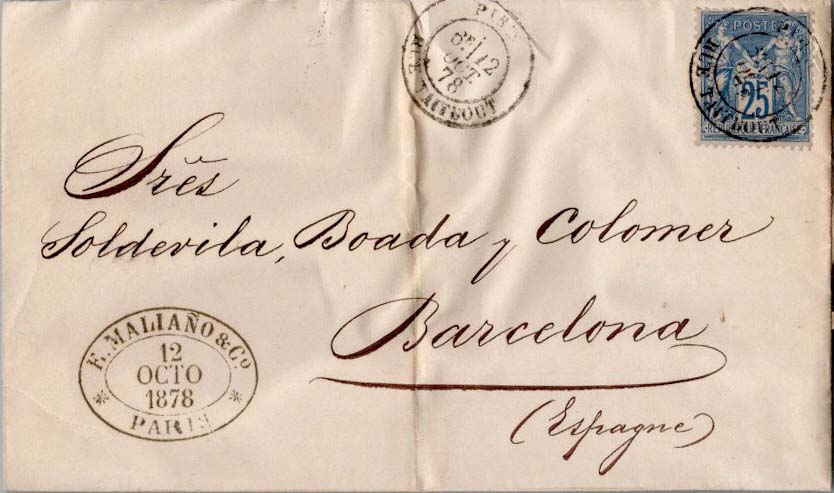 PARIS
6E/12
OCT.
78
RUE TAITBOUT
POSTES
25
REPUBLIQUE FRANCAISE
PARIS
RUE TAITBOUT
Srēs
Soldevila, Boada y Colomer
Barcelona
(Espagne)
E. MALIAÑO & Cº
12
OCTO
1878
PARIS